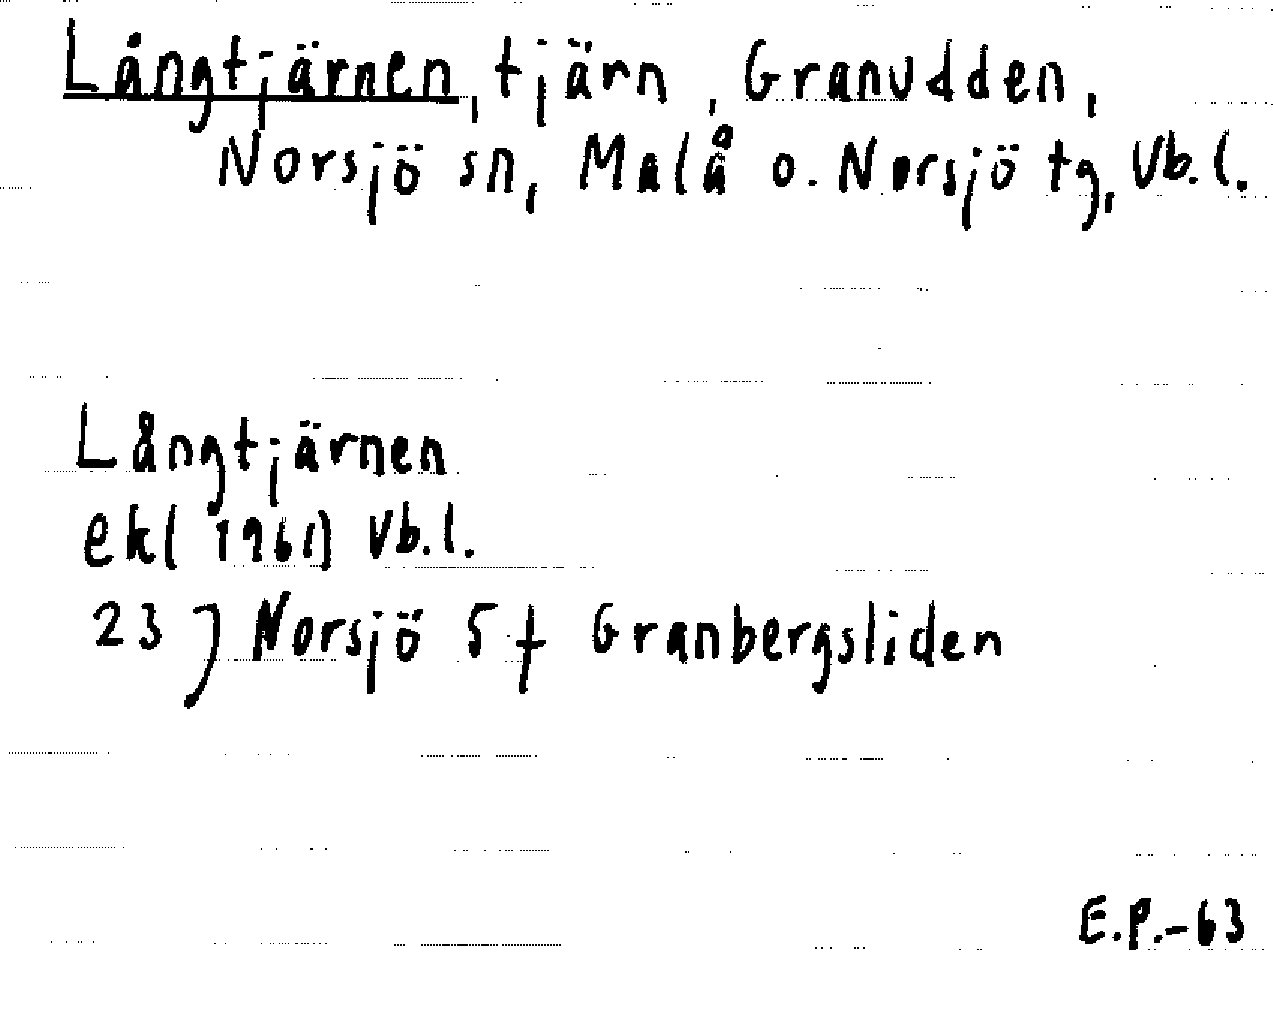 Långtjärnen, tjärn, Granudden,
Norsjö sn, Malå o. Norsjö tg, Vb.l.
Långtjärnen
ek( 1961) Vb.l.
23 J Norsjö 5 f Granbergsliden
E.P.-63